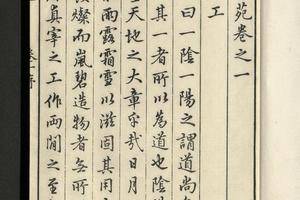 苑卷之一
工
曰一陰一陽之謂道尚
其一者所以為道也陰
天地之大章乎哉日月
雨露霜雪以滋固其用
燦而嵐碧造物者無所
真宰之工作兩間之至